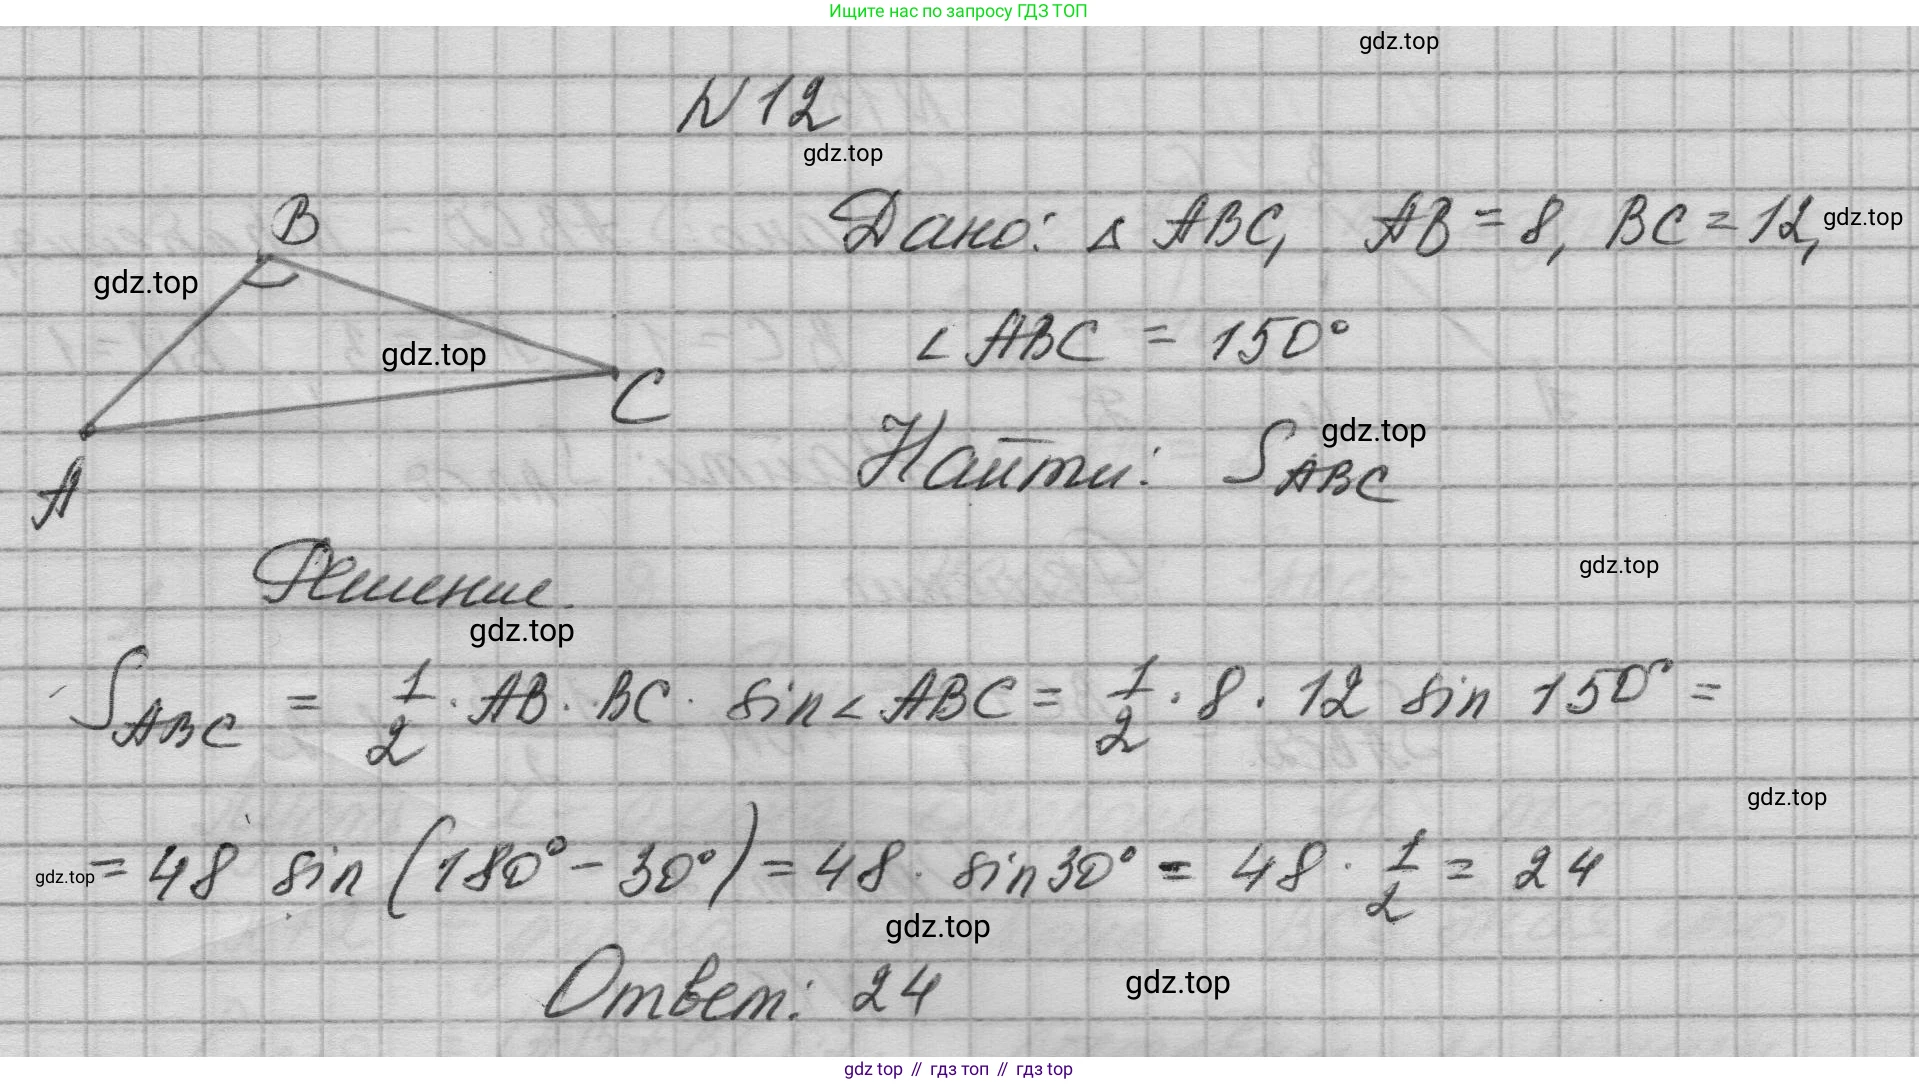 Ищите нас по запросу ГДЗ ТОП
gdz.top
N 12
gdz.top
B
Дано: △ ABC, AB = 8, BC = 12,
gdz.top
gdz.top
∠ ABC = 150°
gdz.top
C
Найти: S_ABC
gdz.top
A
Решение.
gdz.top
gdz.top
S_ABC = 1/2 · AB · BC · sin ∠ ABC = 1/2 · 8 · 12 sin 150° =
gdz.top
gdz.top
= 48 sin (180° - 30°) = 48 · sin 30° = 48 · 1/2 = 24
gdz.top
Ответ: 24
gdz.top
gdz top // гдз топ // gdz top